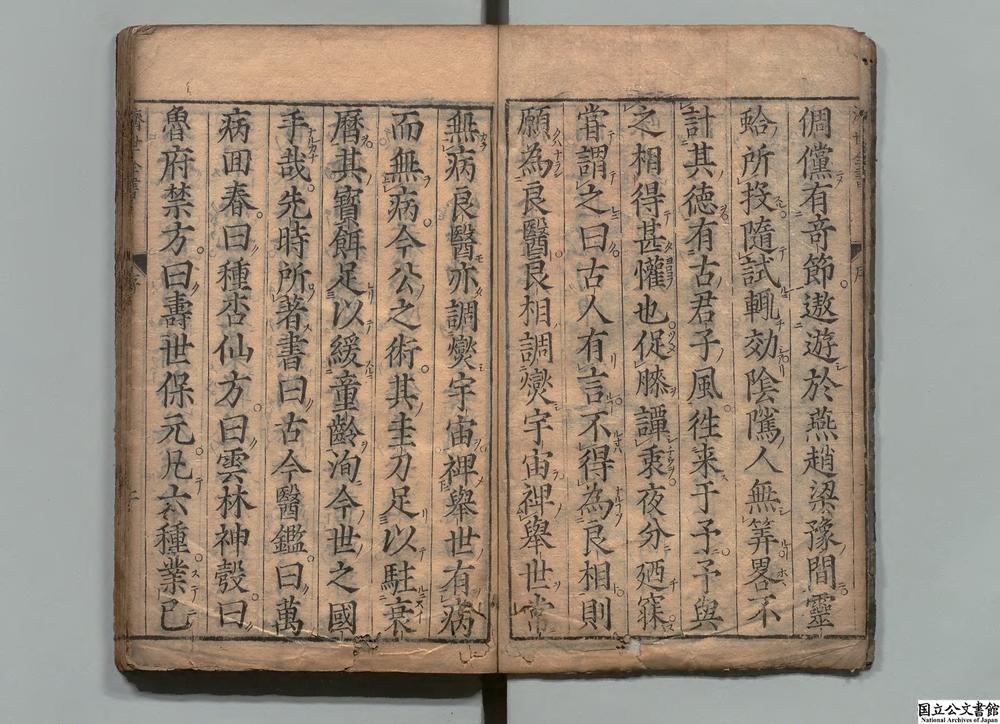 倜儻有竒節遨遊於燕趙梁豫間靈
蛤所投隨試輒効陰騭人無筭畧不
計其德有古君子風徃来于予予與
之相得甚懽也促膝譚衷夜分廼寐
甞謂之曰古人有言不得為良相則
願為良醫良相調爕宇宙裨舉世常
無病良醫亦調爕宇宙裨舉世有病
而無病今公之術其圭刀足以駐衰
曆其寶餌足以緩童齡洵今世之國
手哉先時所著書曰古今醫鑑曰萬
病回春曰種杏仙方曰雲林神彀曰
魯府禁方曰壽世保元凡六種業已
序
国立公文書館
National Archives of Japan